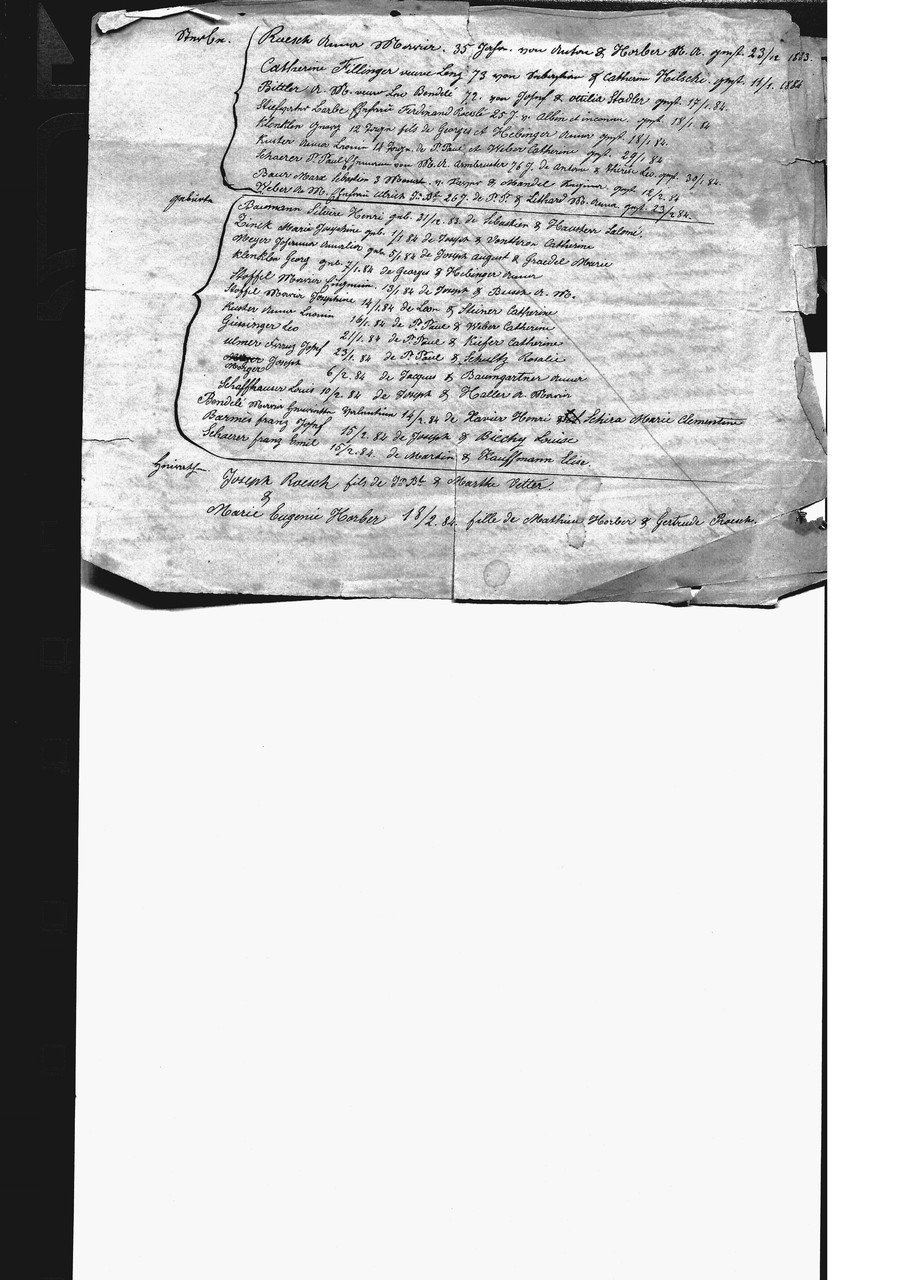 Sterben.
Roesch Anna Maria. 35 Jahr. von Anton & Horber M. A. gest. 23/12 1883.
Catharine Fillinger veuve Lenz 73 von Sebastian & Catharin Hilsche. gest. 14/1. 1884
Bittler A. M. veuve Luc Bendelé 72. von Josef & Otilia Stadler gest. 17/1. 84.
Barbe Ehefrau Ferdinand Roesch 25 J. v. Albin et inconnu. gest. 18/1 84
Klenklen Georg 12 fils de Georges et Helbinger Anna gest. 18/1. 84.
Kuster Anna 14 de P. Paul et Weber Catherine gest. 29/1. 84
Schaerer P. Paul von M. A. Armbruster 76 J. de Antoni & gest. 30/1. 84.
Baur Marx Sebastien 3 Monat. v. & Mandel gest. 12/2. 84
Weber A. M. Ehefrau Ulrich Jn Bt 26 J. de P. P. & Lethard M. Anna gest. 23/2 84.
Geburten
Baumann Silvère Henri geb. 31/12. 83. de Sébastien & Hausherr Salomé.
Zinck Marie Joséphine geb. 1/1 84 de Joseph & Vonthron Catherine
Meyer Amalia geb. 5/1 84 de Joseph August & Graedel Marie
Klenklen Georg geb. 7/1. 84 de Georges & Helbinger Anna
Stoffel Maria 13/1 84 de Joseph & A. M.
Stoffel Maria Josephine 14/1. 84 de Leon & Steiner Catherine
Kuster Anna 16/1. 84 de P. Paul & Weber Catherine
Gissinger Leo 21/1. 84 de P. Paul & Kiefer Catherine
Ulmer Franz Josef 23/1. 84 de P. Paul & Schultz Rosalie
Joseph 6/2. 84 de Jacques & Baumgartner Anna
Schaffhauser Louis 10/2. 84 de Joseph & Haller A. Maria
Bendelé Maria Valentine 14/2. 84 de Xavier Henri & Schira Marie Clementine
Barmès franz Josef 15/2. 84 de Joseph & Biechy Louise
Schaerer franz Emil 15/2. 84. de Martin & Kauffmann Elise.
Heirath
Joseph Roesch fils de Jn Bt & Martha Vetter.
&
Marie Eugenie Horber 18/2. 84. fille de Mathieu Horber & Gertrude Roesch.